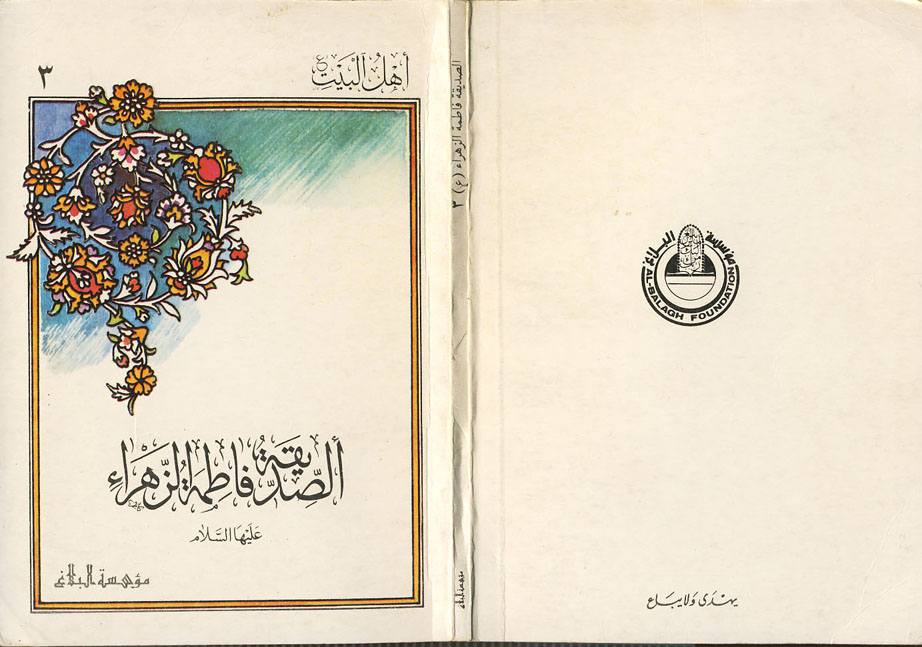 أهل البيت ع
٣
ألصديقة فاطمة الزهراء
عليها السلام
مؤسسة البلاغ
الصديقة فاطمة الزهراء (ع) ٣
مؤسسة البلاغ
مؤسسة البلاغ
AL-BALAGH FOUNDATION
يهدى ولا يباع